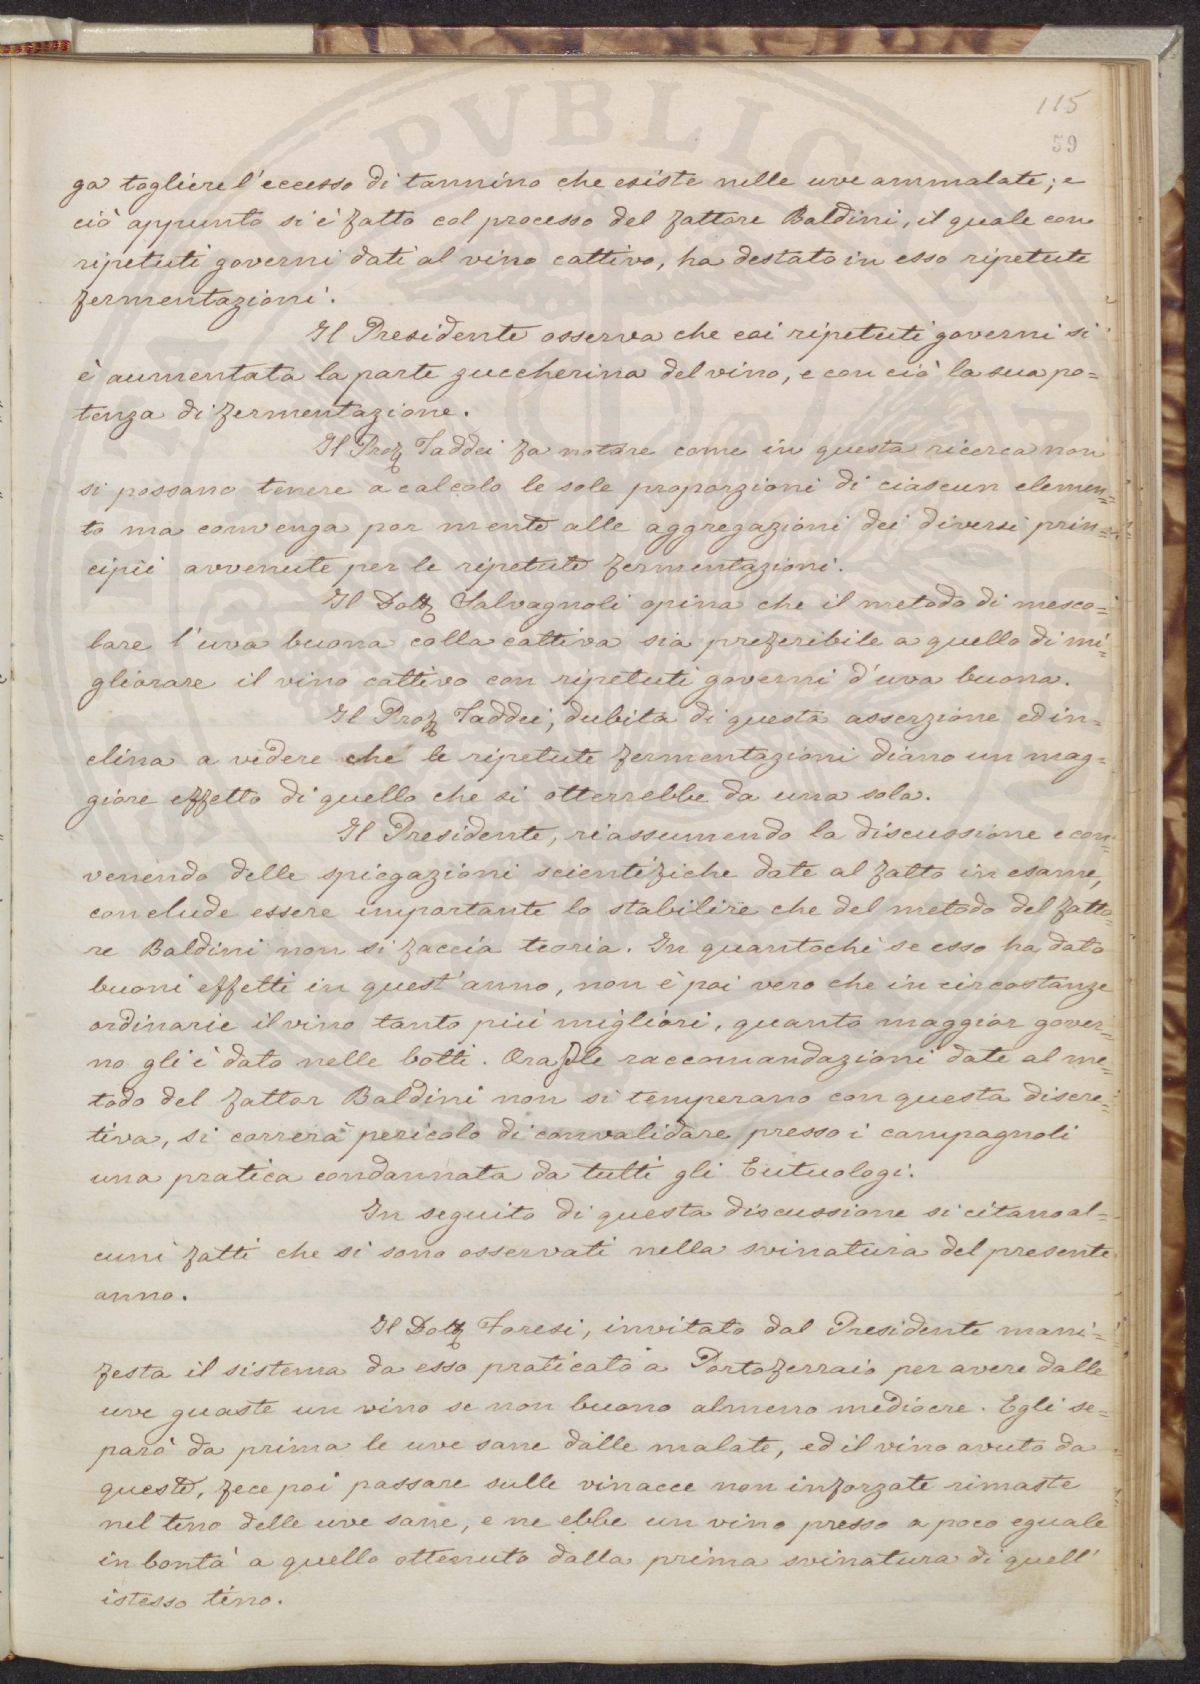 115
59
ga togliere l'eccesso di tannino che esiste nelle uve ammalate; e
ciò appunto si è fatto col processo del fattore Baldini, il quale con
ripetuti governi dati al vino cattivo, ha destato in esso ripetute
fermentazioni.
Il Presidente osserva che coi ripetuti governi si
è aumentata la parte zuccherina del vino, e con ciò la sua po=
tenza di fermentazione.
Il Prof Taddei fa notare come in questa ricerca non
si possano tenere a calcolo le sole proporzioni di ciascun elemen=
to ma convenga por mente alle aggregazioni dei diversi prin=
cipii avvenute per le ripetute fermentazioni.
Il Dott Salvagnoli opina che il metodo di mesco=
lare l'uva buona colla cattiva sia preferibile a quello di mi=
gliorare il vino cattivo con ripetuti governi d'uva buona.
Il Prof Taddei, dubita di questa asserzione ed in=
clina a videre che le ripetute fermentazioni diano un mag=
giore effetto di quello che si otterrebbe da una sola.
Il Presidente, riassumendo la discussione e con=
venendo delle spiegazioni scientifiche date al fatto in esame,
conclude essere importante lo stabilire che del metodo del fatto
re Baldini non si faccia teoria. In quantochè se esso ha dato
buoni effetti in quest'anno, non è poi vero che in circostanze
ordinarie il vino tanto più migliori, quanto maggior gover=
no gli è dato nelle botti. Ora le raccomandazioni date al me=
todo del fattor Baldini non si temperano con questa discre=
tiva, si correrà pericolo di convalidare presso i campagnoli
una pratica condannata da tutti gli Eutuologi.
In seguito di questa discussione si citano al=
cuni fatti che si sono osservati nella svinatura del presente
anno.
Il Dott Foresi, invitato dal Presidente mani=
festa il sistema da esso praticato a Portoferraio per avere dalle
uve guaste un vino se non buono almeno mediocre. Egli se=
parò da prima le uve sane dalle malate, ed il vino avuto da
queste, fece poi passare sulle vinacce non inforzate rimaste
nel tino delle uve sane, e ne ebbe un vino presso a poco eguale
in bontà a quello ottenuto dalla prima svinatura di quell'
istesso tino.